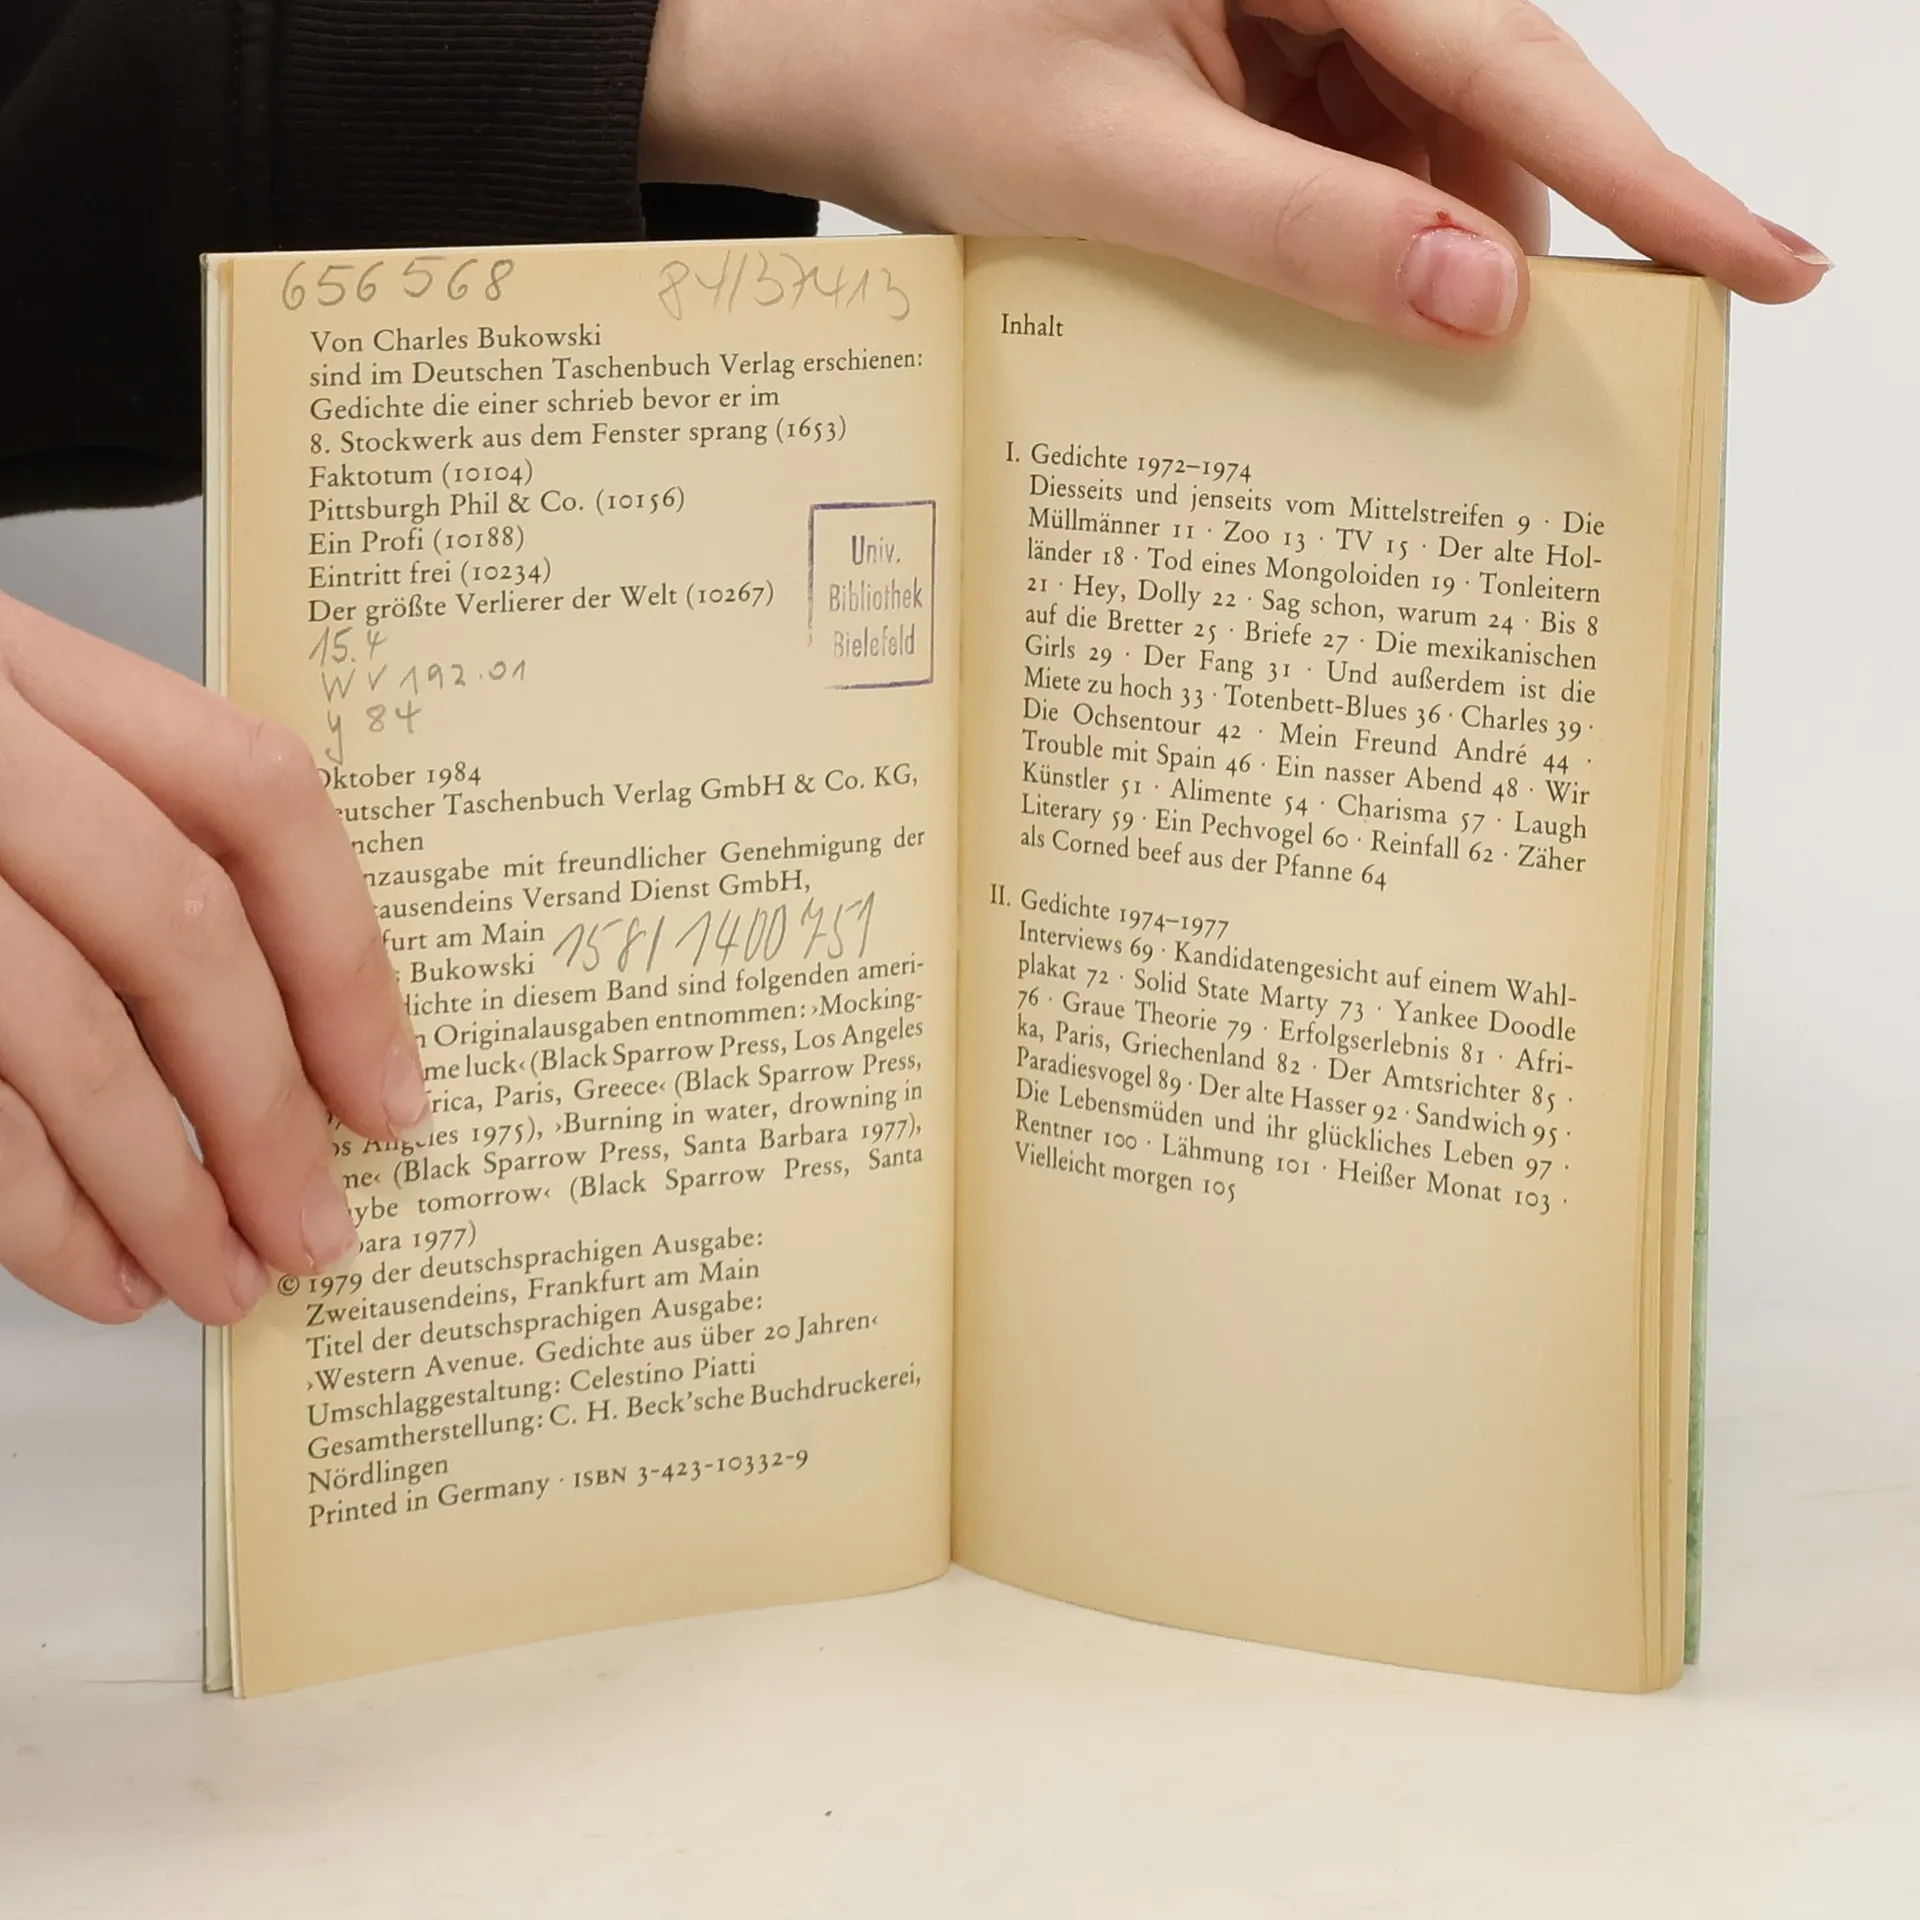 656568 84/37413
Von Charles Bukowski
sind im Deutschen Taschenbuch Verlag erschienen:
Gedichte die einer schrieb bevor er im
8. Stockwerk aus dem Fenster sprang (1653)
Faktotum (10104)
Pittsburgh Phil & Co. (10156)
Ein Profi (10188)
Eintritt frei (10234)
Der größte Verlierer der Welt (10267)
Univ.
Bibliothek
Bielefeld
15.4
WV 192.01
y 84
Oktober 1984
eutscher Taschenbuch Verlag GmbH & Co. KG,
nchen
nzausgabe mit freundlicher Genehmigung der
tausendeins Versand Dienst GmbH,
furt am Main
158/1400751
Bukowski
dichte in diesem Band sind folgenden ameri-
n Originalausgaben entnommen: ›Mocking-
me luck‹ (Black Sparrow Press, Los Angeles
rica, Paris, Greece‹ (Black Sparrow Press,
os Angeles 1975), ›Burning in water, drowning in
me‹ (Black Sparrow Press, Santa Barbara 1977),
ybe tomorrow‹ (Black Sparrow Press, Santa
bara 1977)
© 1979 der deutschsprachigen Ausgabe:
Zweitausendeins, Frankfurt am Main
Titel der deutschsprachigen Ausgabe:
›Western Avenue. Gedichte aus über 20 Jahren‹
Umschlaggestaltung: Celestino Piatti
Gesamtherstellung: C. H. Beck'sche Buchdruckerei,
Nördlingen
Printed in Germany · ISBN 3-423-10332-9
Inhalt
I. Gedichte 1972–1974
Diesseits und jenseits vom Mittelstreifen 9 · Die
Müllmänner 11 · Zoo 13 · TV 15 · Der alte Hol-
länder 18 · Tod eines Mongoloiden 19 · Tonleitern
21 · Hey, Dolly 22 · Sag schon, warum 24 · Bis 8
auf die Bretter 25 · Briefe 27 · Die mexikanischen
Girls 29 · Der Fang 31 · Und außerdem ist die
Miete zu hoch 33 · Totenbett-Blues 36 · Charles 39 ·
Die Ochsentour 42 · Mein Freund André 44 ·
Trouble mit Spain 46 · Ein nasser Abend 48 · Wir
Künstler 51 · Alimente 54 · Charisma 57 · Laugh
Literary 59 · Ein Pechvogel 60 · Reinfall 62 · Zäher
als Corned beef aus der Pfanne 64
II. Gedichte 1974–1977
Interviews 69 · Kandidatengesicht auf einem Wahl-
plakat 72 · Solid State Marty 73 · Yankee Doodle
76 · Graue Theorie 79 · Erfolgserlebnis 81 · Afri-
ka, Paris, Griechenland 82 · Der Amtsrichter 85 ·
Paradiesvogel 89 · Der alte Hasser 92 · Sandwich 95 ·
Die Lebensmüden und ihr glückliches Leben 97 ·
Rentner 100 · Lähmung 101 · Heißer Monat 103 ·
Vielleicht morgen 105